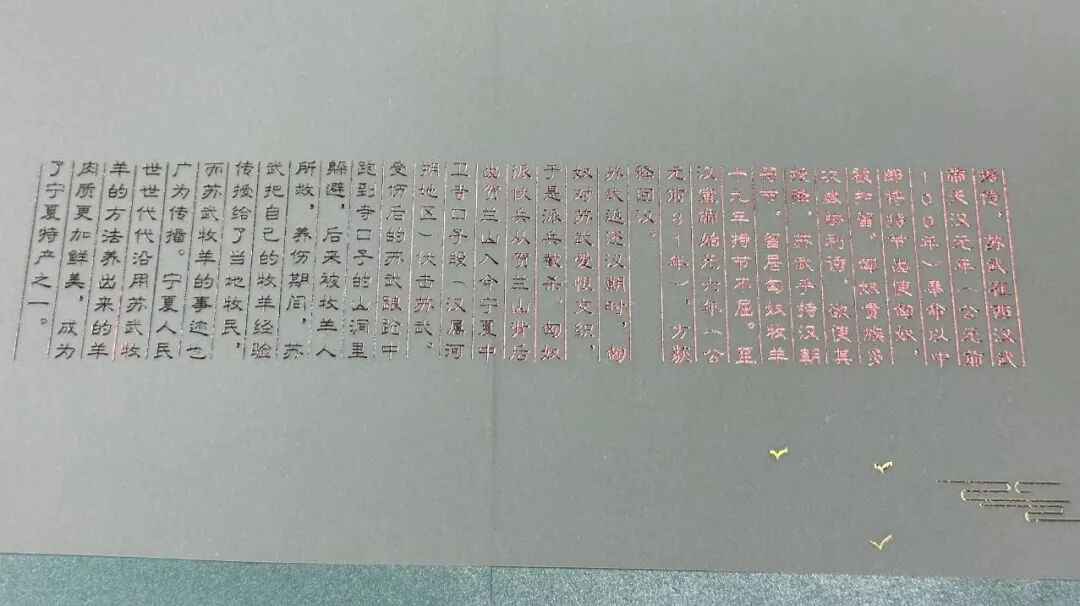 据传，苏武在西汉武
帝天汉元年（公元前
100年）奉命以中
郎将持节出使匈奴，
被扣留。匈奴贵族多
次威胁利诱，欲使其
投降，苏武手持汉朝
符节，留居匈奴牧羊
十九年持节不屈。至
汉宣帝始元六年（公
元前81年），方获
释回汉。
苏武返还汉朝时，匈
奴对苏武爱恨交织，
于是派兵截杀。匈奴
派伏兵从贺兰山背后
出贺兰山入今宁夏中
卫寺口子段（汉属河
朔地区）伏击苏武。
受伤后的苏武踉跄中
跑到寺口子的山洞里
躲避，后来被牧羊人
所救，养伤期间，苏
武把自己的牧羊经验
传授给了当地牧民，
而苏武牧羊的事迹也
广为传播。宁夏人民
世世代代沿用苏武牧
羊的方法养出来的羊
肉质更加鲜美，成为
了宁夏特产之一。